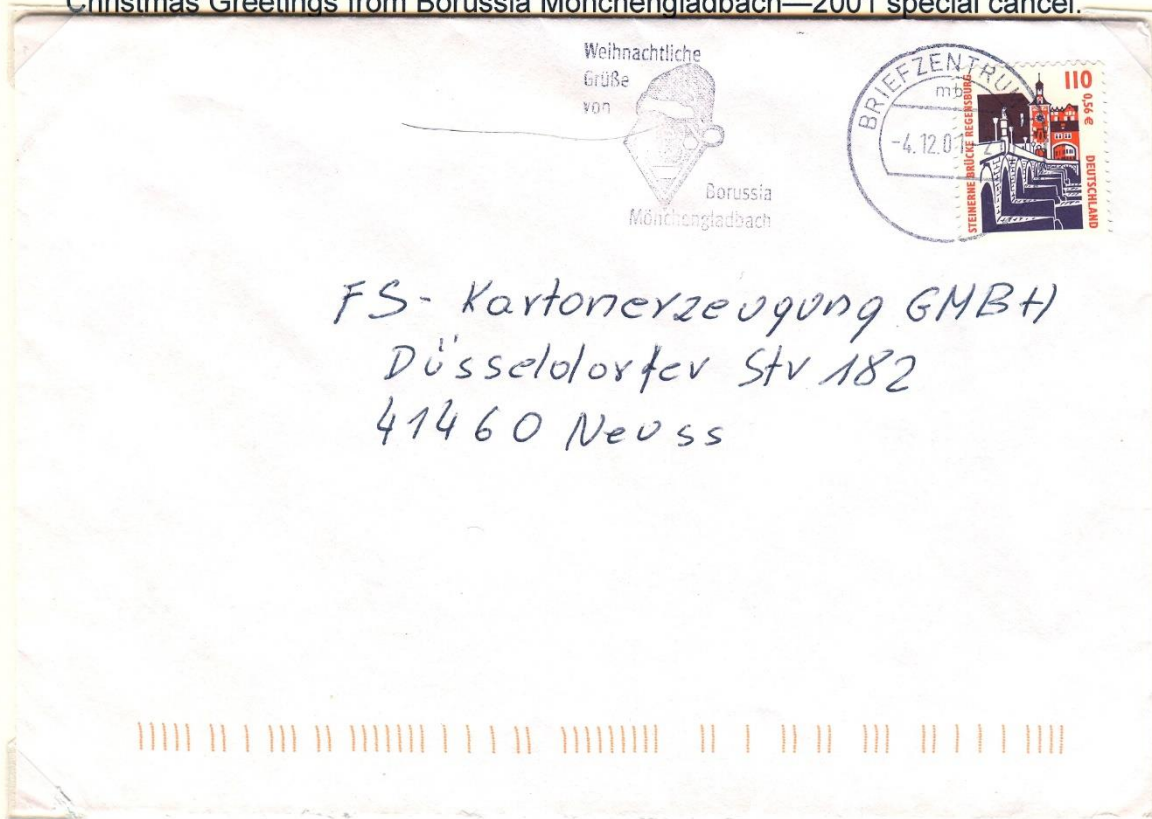 Christmas Greetings from Borussia Mönchengladbach—2001 special cancel.
Weihnachtliche
Grüße
von
Borussia
Mönchengladbach
BRIEFZENTRU
mb
-4.12.01
110
0,56 €
STEINERNE BRÜCKE REGENSBURG
DEUTSCHLAND
FS- Kartonerzeugung GMBH
Düsseldorfer Str 182
41460 Neuss